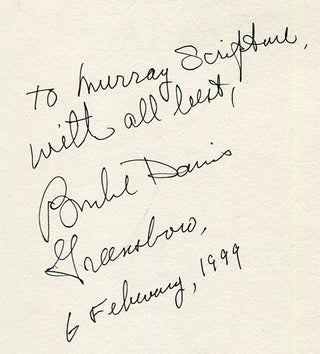 to Murray Scripture,
with all best,
Burke Davis
Greensboro,
6 February, 1999